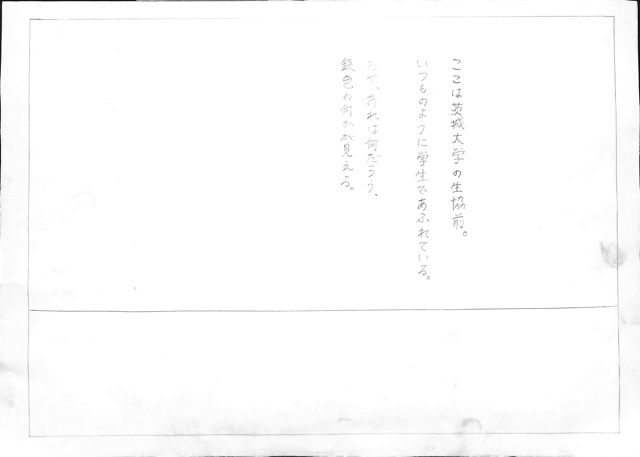 ここは茨城大学の生協前。
いつものように学生であふれている。
おや、あれは何だろう、
銀色の何かが見える。